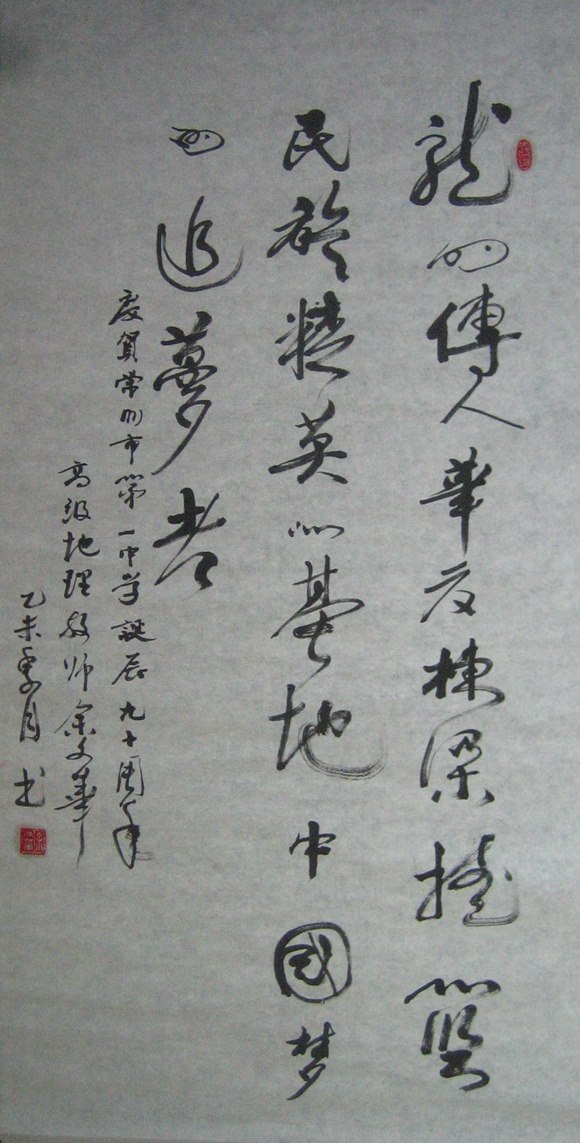 龙的傳人華夏棟梁摇籃
民族精英的基地中國梦
的追夢者
慶賀常州市第一中学誕辰九十周年
高级地理教师余文華
乙未季月书